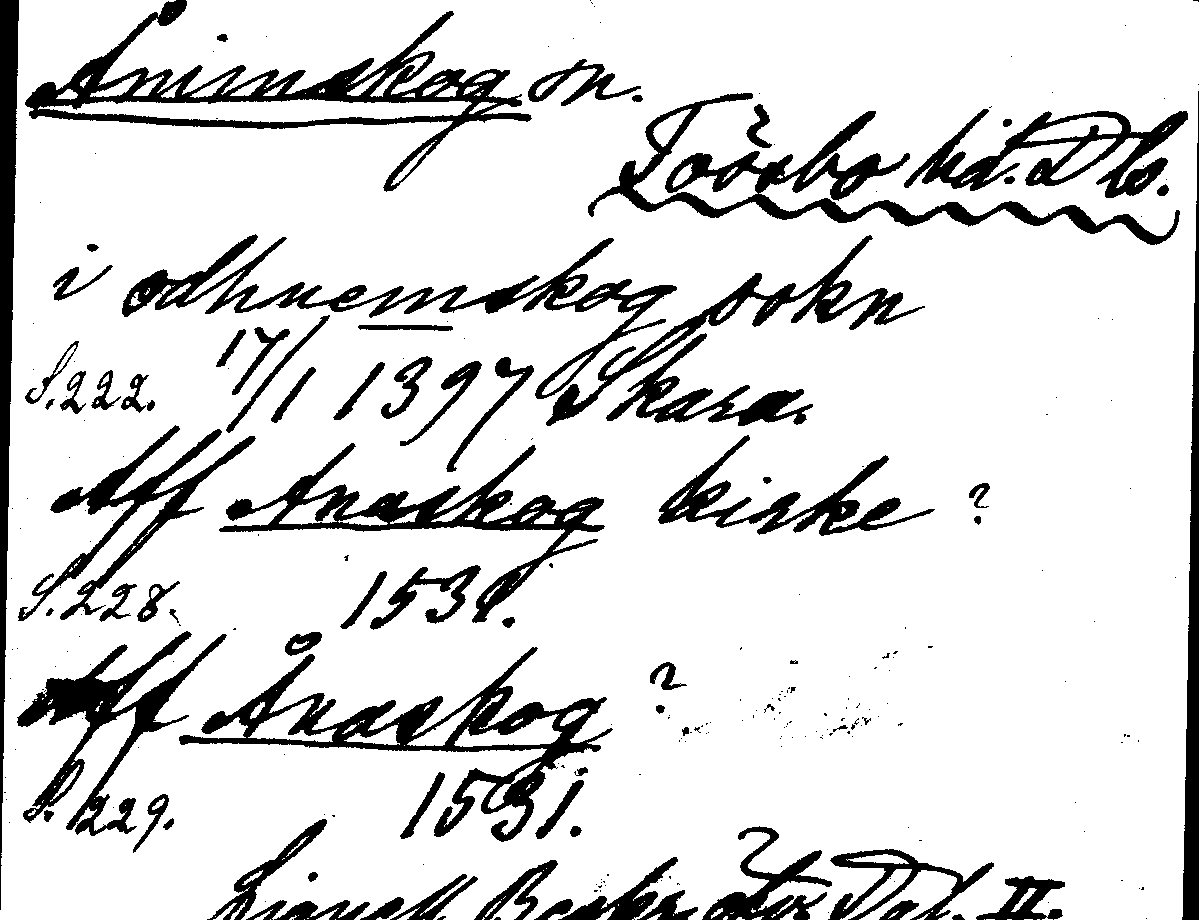 Ånimskog sn.
Tössbo hd. Dls.
i odhnemskog sokn
S.222. 17/1 1397 Skara.
Aff Anaskog kirke ?
S.228. 1531.
Aff Ånaskog ?
S.229. 1531.
Lignell Beskr. öfver Dal. II.